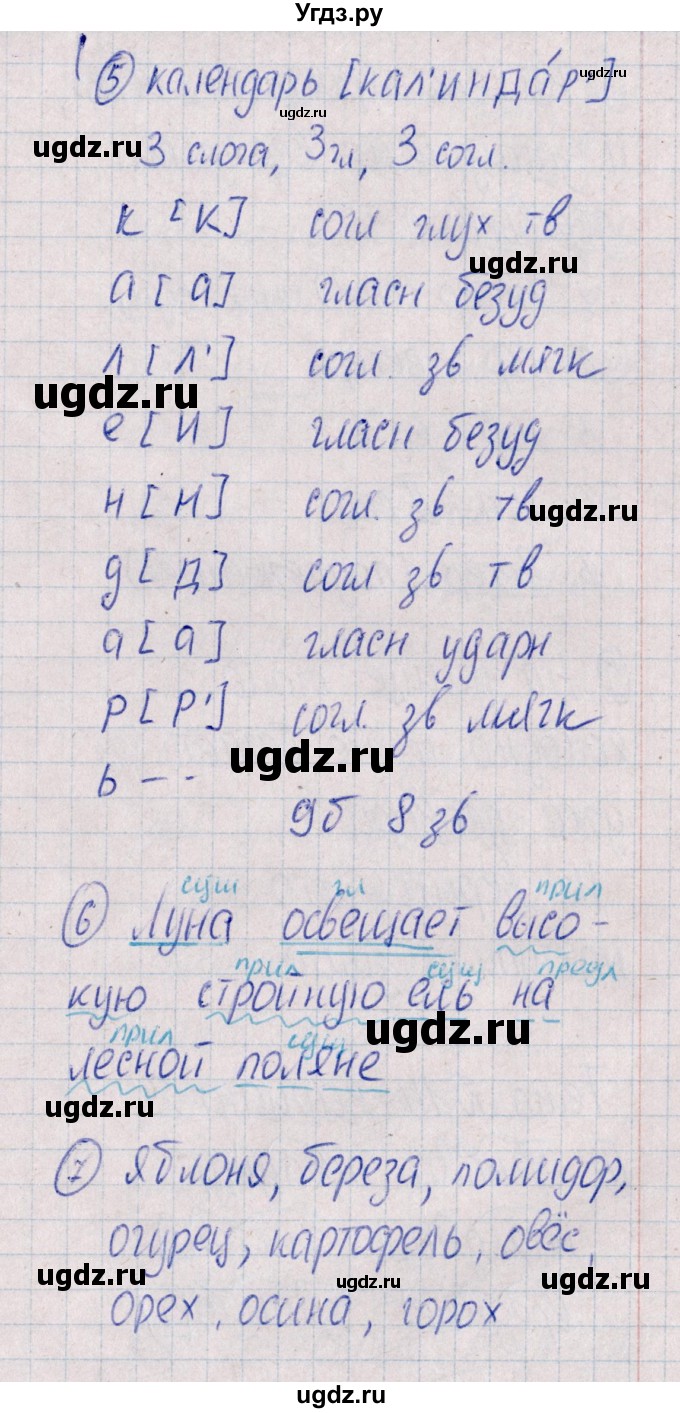 Угдз.ру
5 календарь [кал'инда́р']
ugdz.ru
ugdz.ru
3 слога, 3гл, 3 согл.
к [к] согл глух тв
ugdz.ru
а [а] гласн безуд
л [л'] согл. зв мягк
ugdz.ru
е [и] гласн безуд
н [н] согл. зв тв
ugdz.ru
д [д] согл зв тв
а [а] гласн ударн
р [р'] согл. зв мягк
ugdz.ru
ь - -
9б 8 зв
сущ гл прил
6 Луна освещает высо-
прил сущ предл
кую стройную ель на
ugdz.ru
прил сущ
лесной поляне
ugdz.ru
7 Яблоня, береза, помидор,
огурец, картофель, овёс,
ugdz.ru ugdz.ru ugdz.ru
орех, осина, горох
ugdz.ru